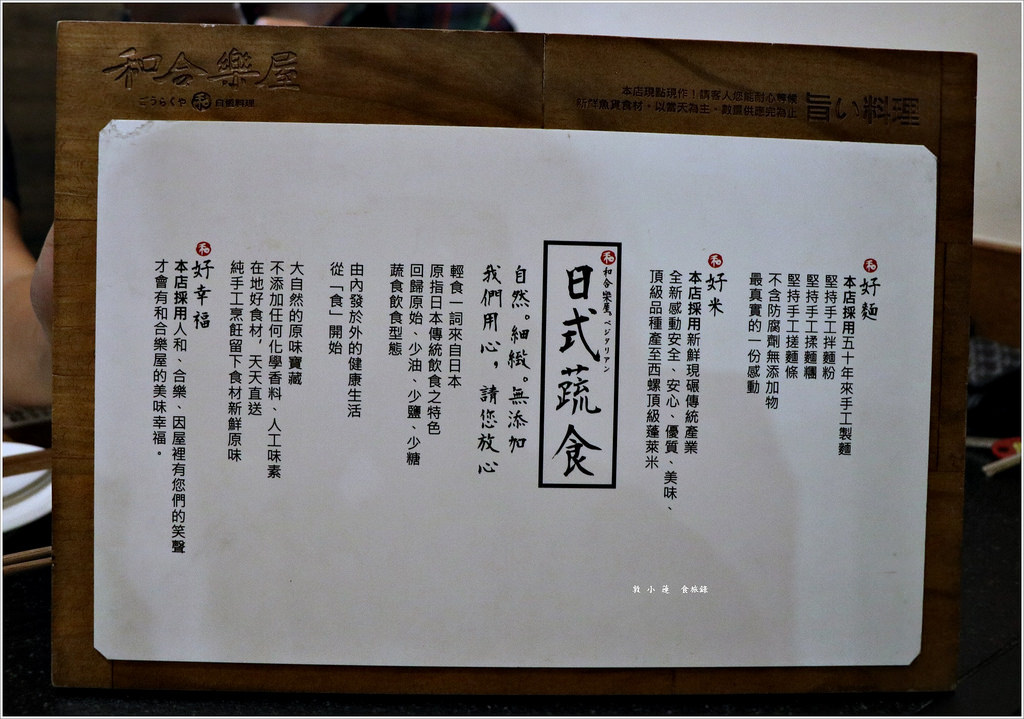 和合樂屋
ごうらくや 和 日式料理
本店現點現作！請客人您能耐心等候
新鮮魚貨食材，以當天為主，數量供應完為止
旨い料理
和 好麵
本店採用五十年來手工製麵
堅持手工拌麵粉
堅持手工揉麵糰
堅持手工搓麵條
不含防腐劑無添加物
最真實的一份感動
和 好米
本店採用新鮮現碾傳統產業
全新感動安全、安心、優質、美味、
頂級品種產至西螺頂級蓬萊米
和 和合樂屋。ベジタリアン
日式蔬食
自然。細緻。無添加
我們用心，請您放心
輕食一詞來自日本
原指日本傳統飲食之特色
回歸原始、少油、少鹽、少糖
蔬食飲食型態
由內發於外的健康生活
從「食」開始
大自然的原味寶藏
不添加任何化學香料、人工味素
在地好食材，天天直送
純手工烹飪留下食材新鮮原味
和 好幸福
本店採用人和、合樂、因屋裡有您們的笑聲
才會有和合樂屋的美味幸福。
敦小蓮 食旅錄